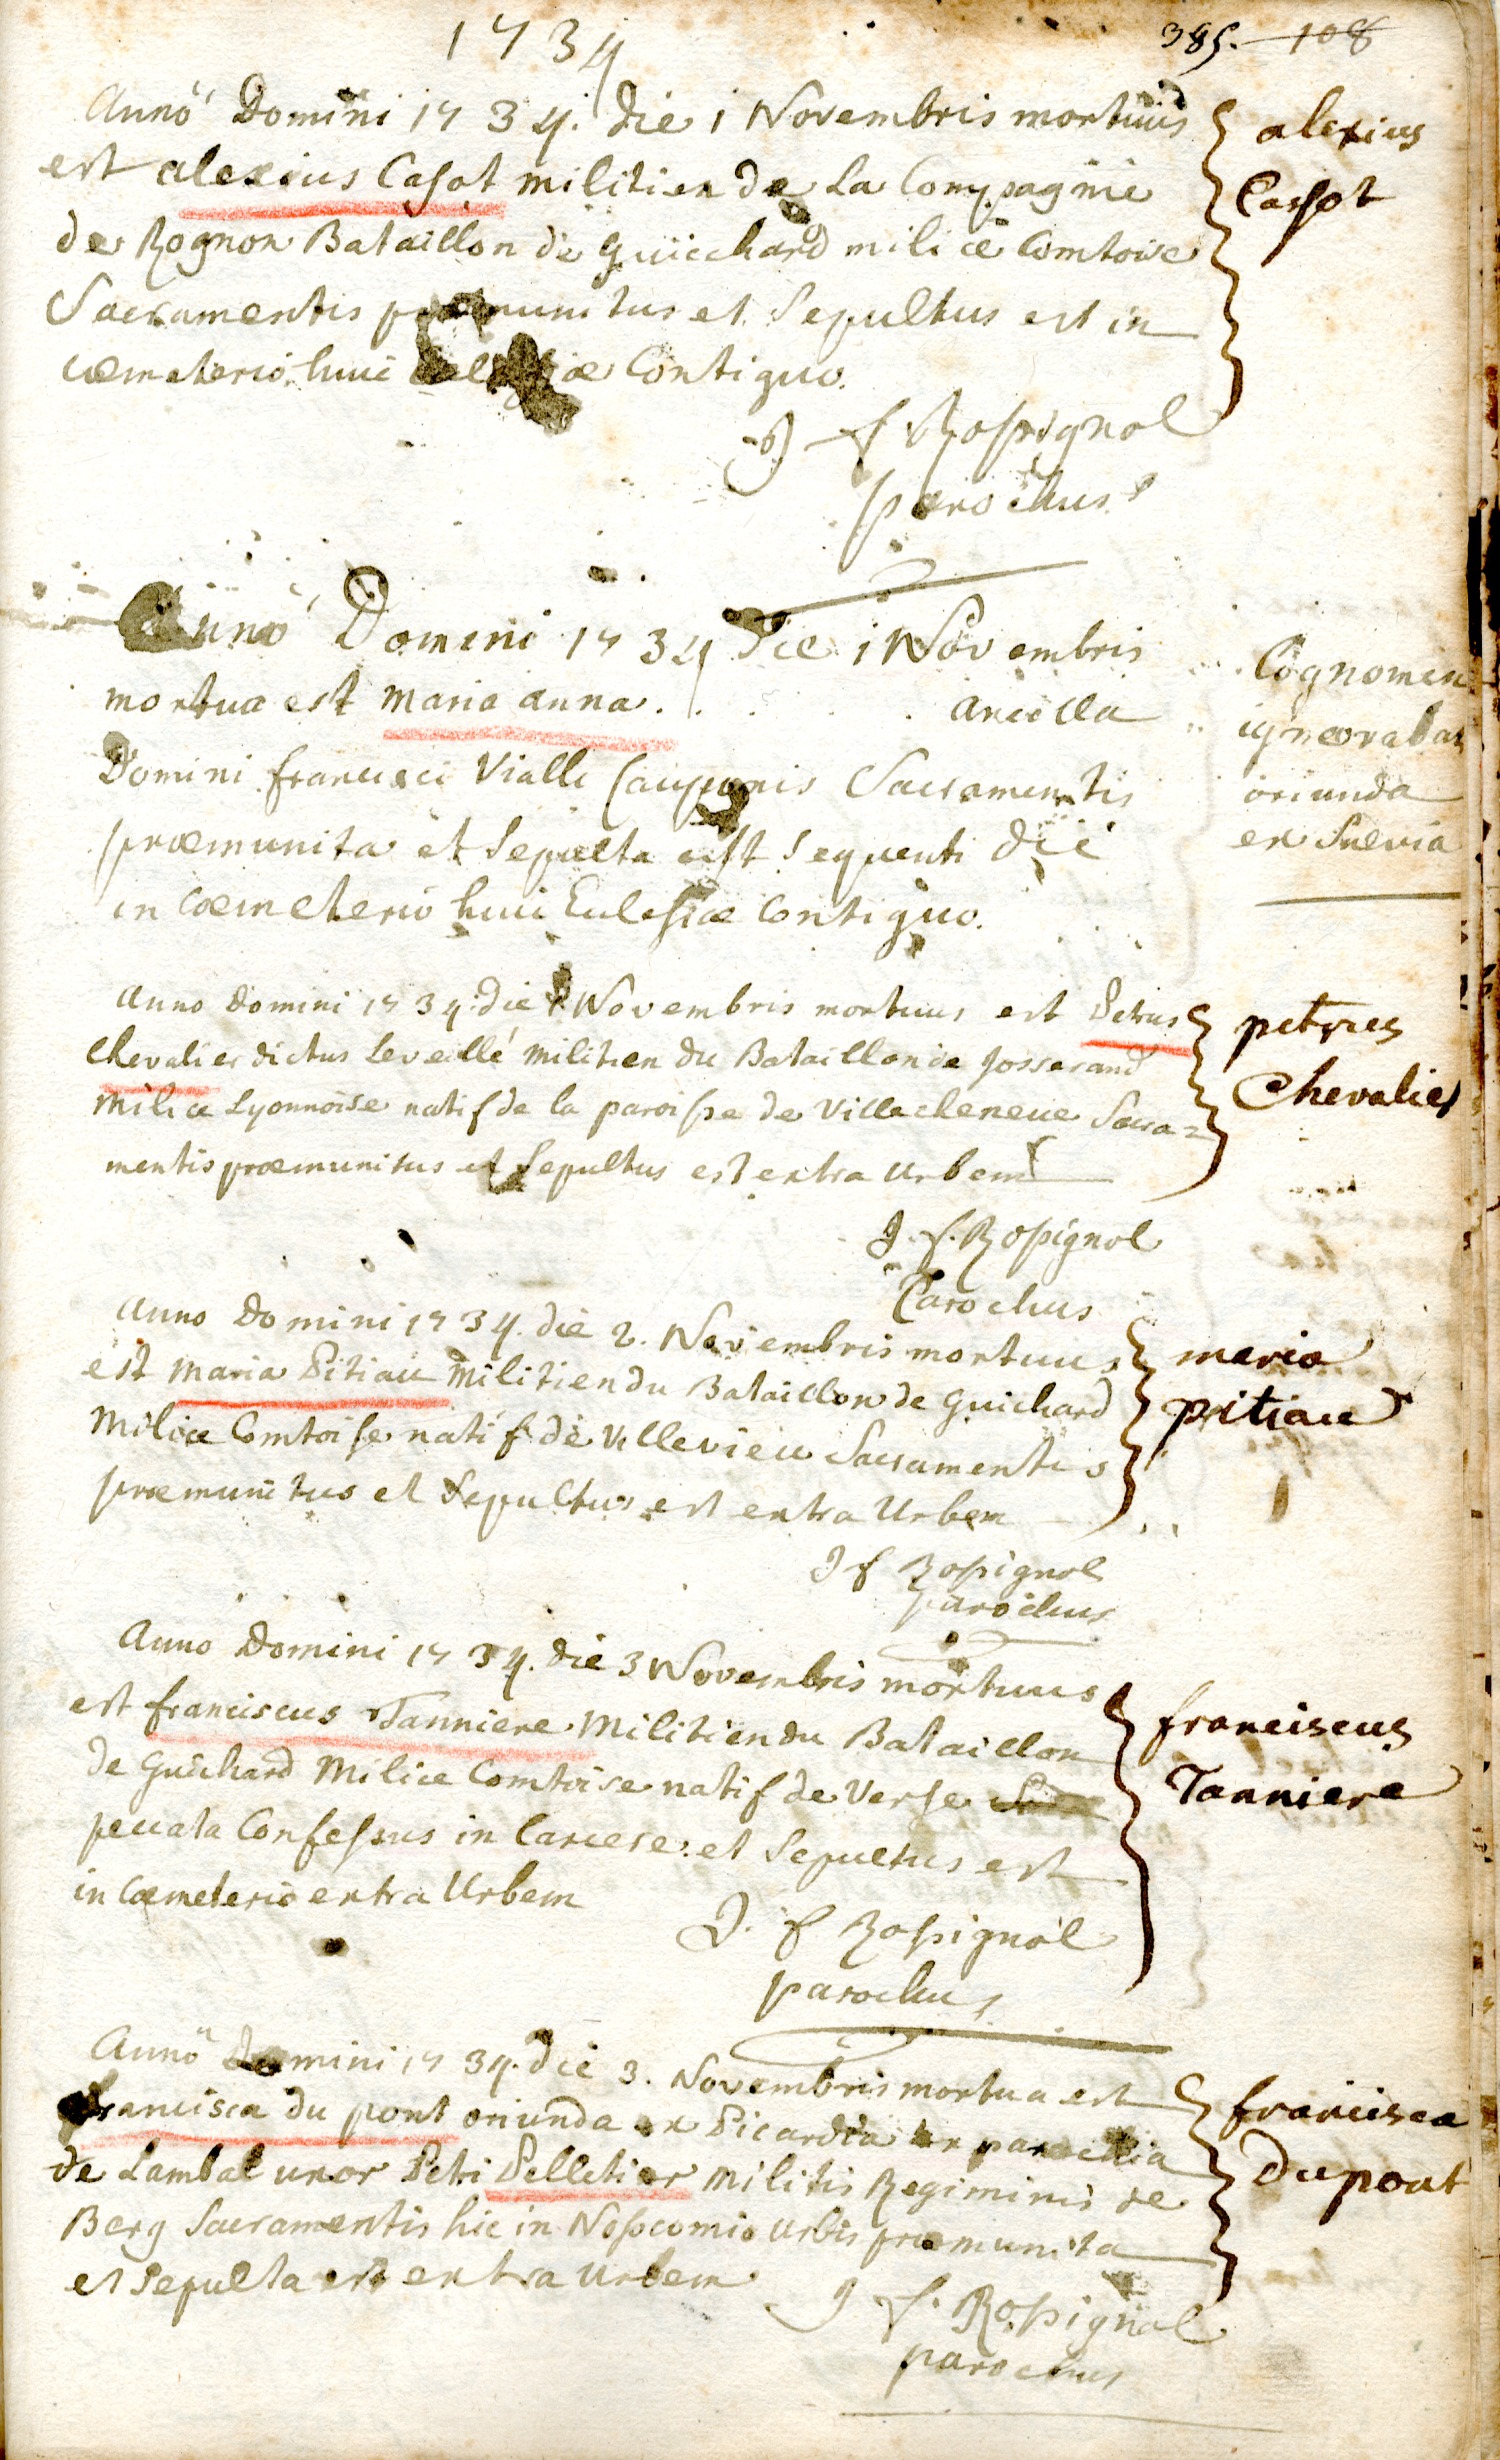 1734
385. 108
Anno Domini 1734. die 1 Novembris mortuus
est alexius Casot militien de La Compagnie
de Rognon Bataillon de Guicchard milice Comtoise
Sacramentis præmunitus et Sepultus est in
cœmeterio huic Ecclesiæ Contiguo.
J f Rossignol
parochus
alexius
Cassot
Anno Domini 1734 die 1 Novembris
mortua est maria anna . . . . . ancilla
Domini francisci Vialle Cauponis Sacramentis
præmunita et Sepulta est Sequenti die
in Cœmeterio huic Eclesiæ Contiguo.
Cognomen
ignorabat
oriunda
ex Suevia
Anno Domini 1734. die Novembris mortuus est Petrus
Chevalier dictus Leveillé militien du Bataillon de Josserand
milice Lyonnoise natif de la paroisse de Villecheneve Sacra=
mentis præmunitus et Sepultus est extra Urbem
J. f. Rossignol
Parochus
petrus
Chevalier
Anno Domini 1734. die 2. Novembris mortuus
est maria Pitiau militien du Bataillon de Guichard
Milice Comtoise natif de Villevieu Sacramentis
præmunitus et Sepultus est extra Urbem
J f Rossignol
parochus
maria
pitiau
Anno Domini 1734. die 3 Novembris mortuus
est franciscus Tanniere Militien du Bataillon
de Guichard Milice Comtoise natif de Verse
peccata Confessus in Carcere et Sepultus est
in Cœmeterio extra Urbem
J. f Rossignol
parochus
franciscus
Tanniere
Anno Domini 1734. die 3. Novembris mortua est
francisca du pont oriunda ex Picardia ex parochia
de Lambal uxor Petri Pelletier militis Regiminis de
Berg Sacramentis hic in Nosocomio Urbis præmunita
et Sepulta est extra Urbem
J f. Rossignol
parochus
francisca
Dupont